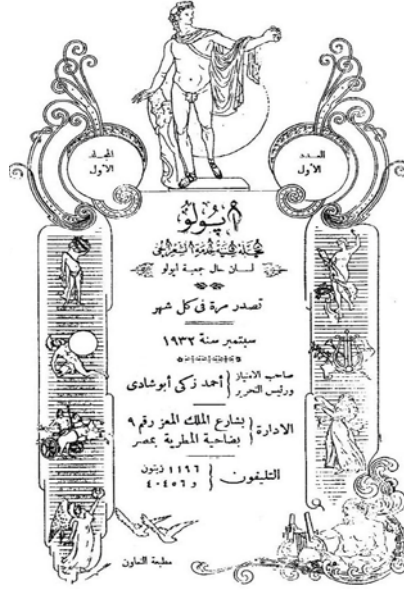 العدد
الأول
المجلد
الأول
أپولو
لسان حال جمعية أبولو
تصدر مرة فى كل شهر
سبتمبر سنة ١٩٣٢
صاحب الامتياز ورئيس التحرير { أحمد زكى أبوشادى
الادارة { بشارع الملك المعز رقم ٩ بضاحية المطرية بمصر
التليفون { ١١٩٦ زيتون و ٤٠٤٥٦
مطبعة التعاون